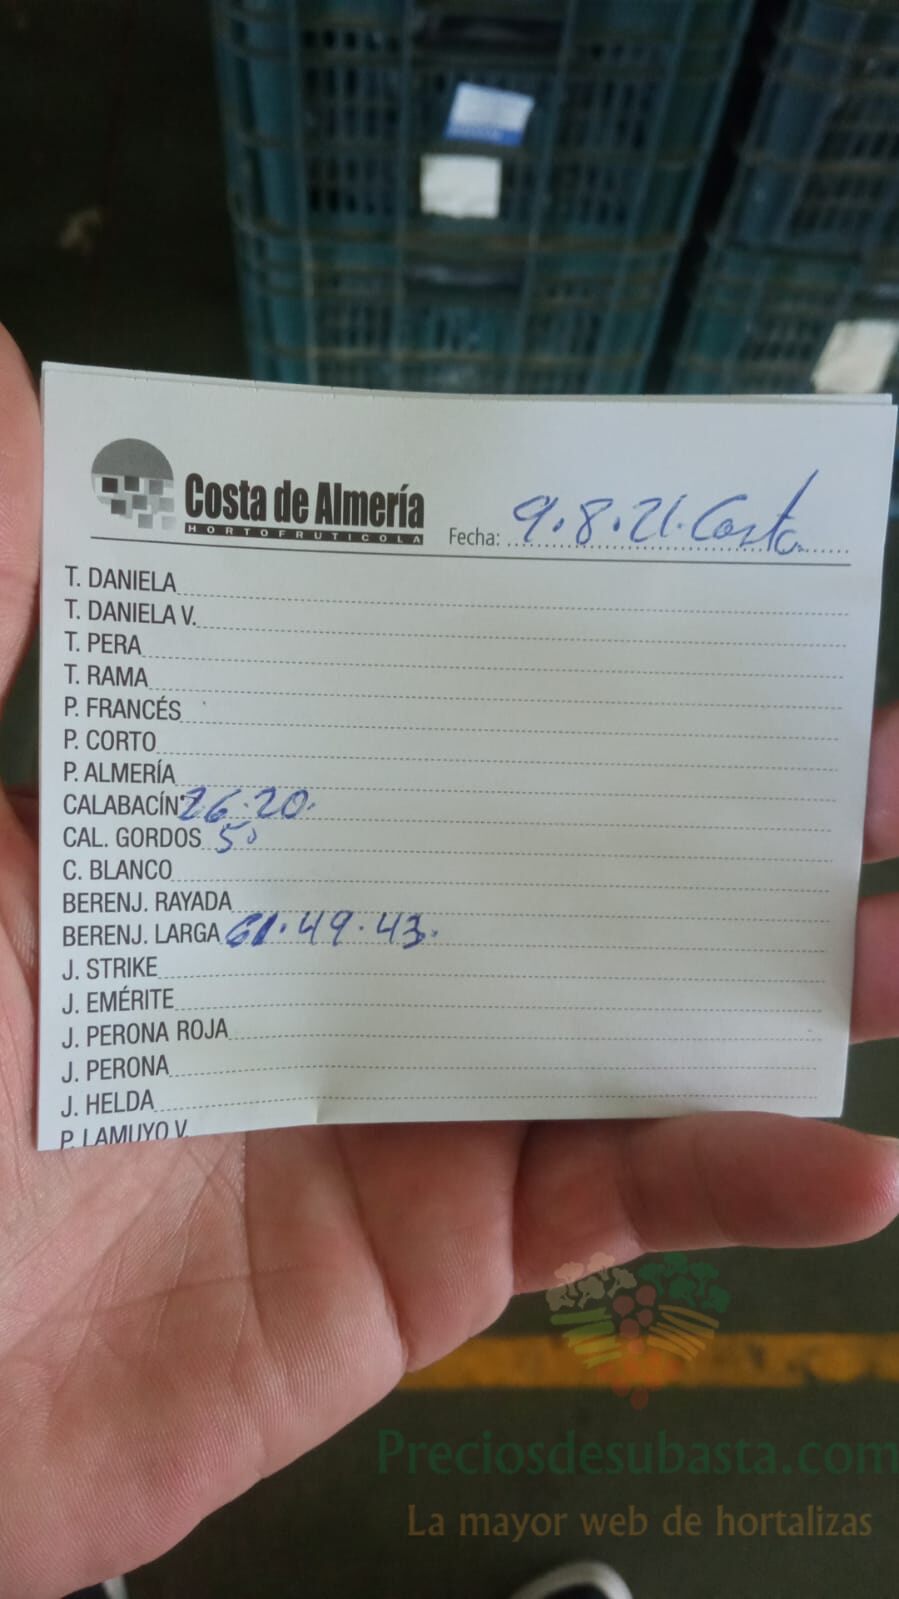 Costa de Almería
HORTOFRUTICOLA
Fecha: 9.8.21. Costa
T. DANIELA
T. DANIELA V.
T. PERA
T. RAMA
P. FRANCÉS
P. CORTO
P. ALMERÍA
CALABACÍN 26.20.
CAL. GORDOS 50
C. BLANCO
BERENJ. RAYADA
BERENJ. LARGA 61.49.43.
J. STRIKE
J. EMÉRITE
J. PERONA ROJA
J. PERONA
J. HELDA
P. LAMUYO V.
Preciosdesubasta.com
La mayor web de hortalizas